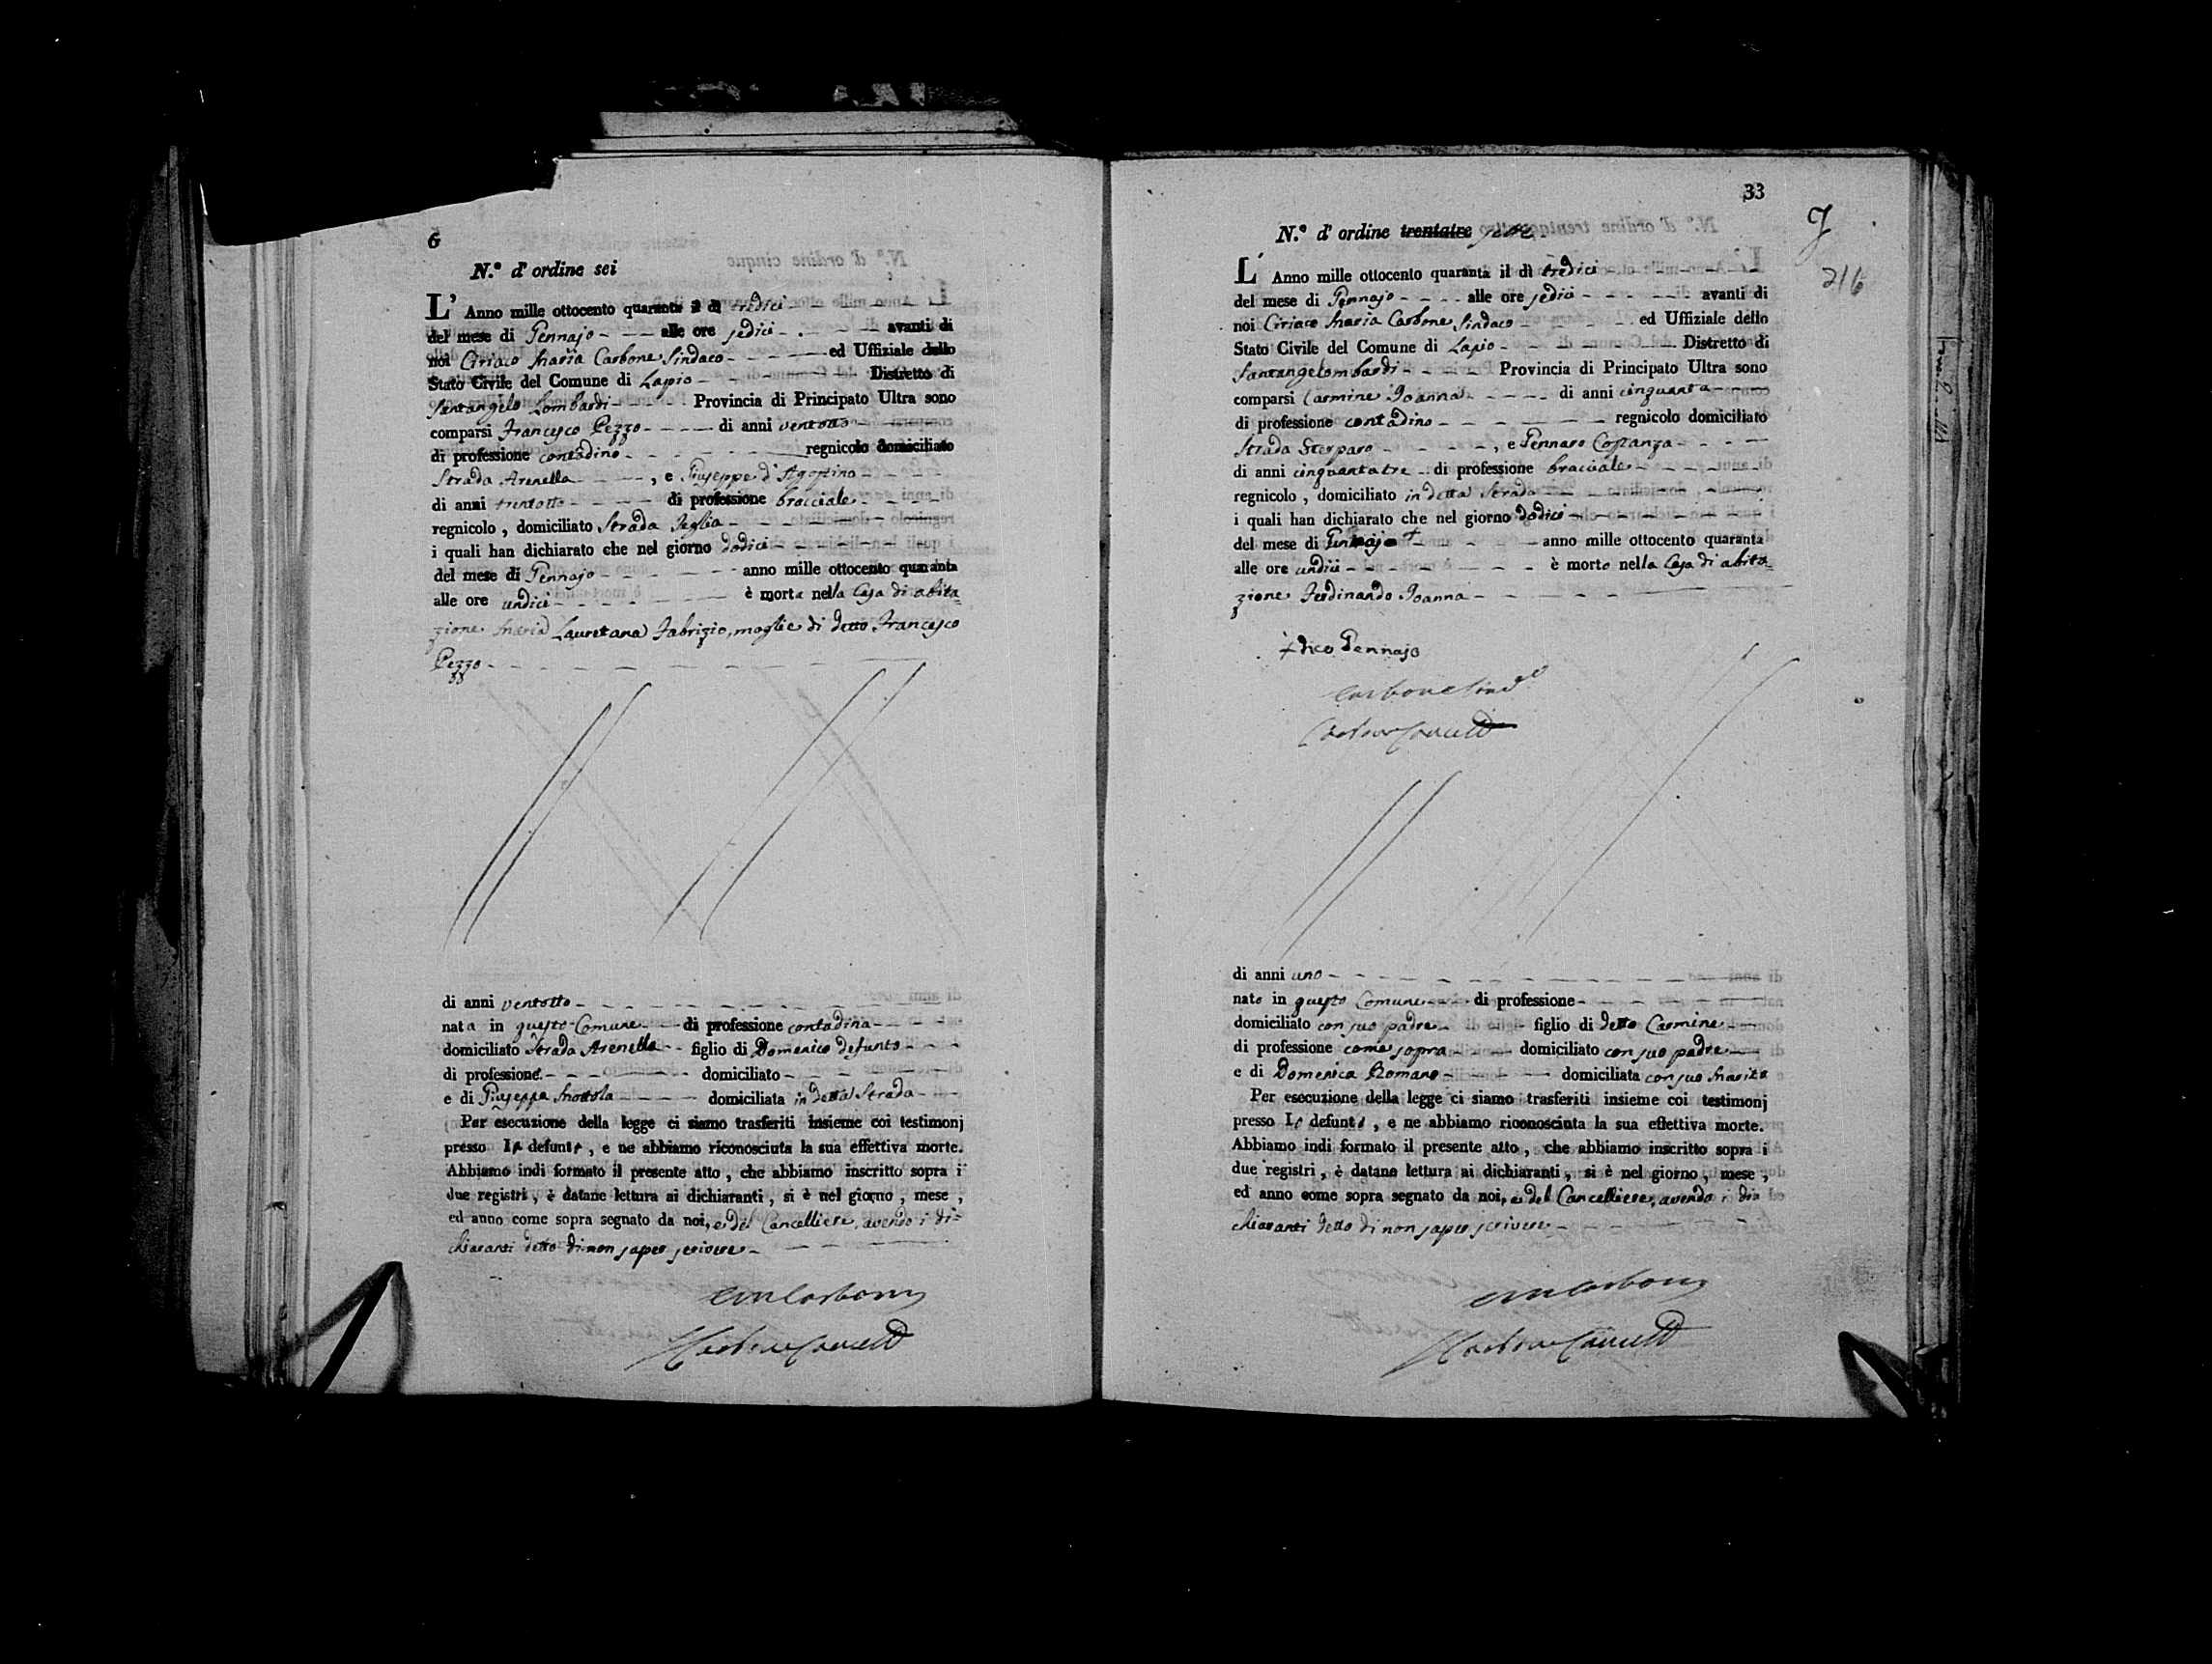 6
N.º d'ordine sei
L' Anno mille ottocento quaranta il dì tredici
del mese di Gennajo alle ore sedici avanti di
noi Ciriaco Maria Carbone Sindaco ed Uffiziale dello
Stato Civile del Comune di Lapio Distretto di
Santangelo Lombardi Provincia di Principato Ultra sono
comparsi Francesco Pezzo di anni ventotto
di professione contadino regnicolo domiciliato
Strada Arenella , e Giuseppe d'Agostino
di anni trentotto di professione bracciale
regnicolo , domiciliato Strada Teglia
i quali han dichiarato che nel giorno dodici
del mese di Gennajo anno mille ottocento quaranta
alle ore undici è morta nella Casa di abita=
zione Maria Lauretana Fabrizio, moglie di detto Francesco
Pezzo
di anni ventotto
nata in questo Comune di professione contadina
domiciliato Strada Arenella figlio di Domenico defunto
di professione domiciliato
e di Giuseppa Mottola domiciliata in detta Strada
Per esecuzione della legge ci siamo trasferiti insieme coi testimonj
presso la defunta , e ne abbiamo riconosciuta la sua effettiva morte.
Abbiamo indi formato il presente atto , che abbiamo inscritto sopra i
due registri , è datane lettura ai dichiaranti , si è nel giorno , mese ,
ed anno come sopra segnato da noi, e del Cancelliere, avendo i di=
chiaranti detto di non saper scrivere
CM Carbone
Carbone Cancell
33
N.º d'ordine trentatre sette
7
216
L' Anno mille ottocento quaranta il dì tredici
del mese di Gennajo alle ore sedici avanti di
noi Ciriaco Maria Carbone Sindaco ed Uffiziale dello
Stato Civile del Comune di Lapio Distretto di
Santangelombardi Provincia di Principato Ultra sono
comparsi Carmine Ioanna di anni cinquanta
di professione contadino regnicolo domiciliato
Strada Sterparo , e Gennaro Costanza
di anni cinquantatre di professione bracciale
regnicolo , domiciliato in detta Strada
i quali han dichiarato che nel giorno dodici
del mese di Gennajo + anno mille ottocento quaranta
alle ore undici è morto nella Casa di abita=
zione Ferdinando Ioanna
+ dico Gennajo
Carbone Sind.º
Carbone Cancell
di anni uno
nato in questo Comune di professione
domiciliato con suo padre figlio di detto Carmine
di professione come sopra domiciliato con suo padre
e di Domenica Romano domiciliata con suo Marito
Per esecuzione della legge ci siamo trasferiti insieme coi testimonj
presso lo defunto , e ne abbiamo riconosciuta la sua effettiva morte.
Abbiamo indi formato il presente atto , che abbiamo inscritto sopra i
due registri , è datane lettura ai dichiaranti , si è nel giorno , mese ,
ed anno come sopra segnato da noi, e del Cancelliere, avendo i di=
chiaranti detto di non saper scrivere
CM Carbone
Carbone Cancell